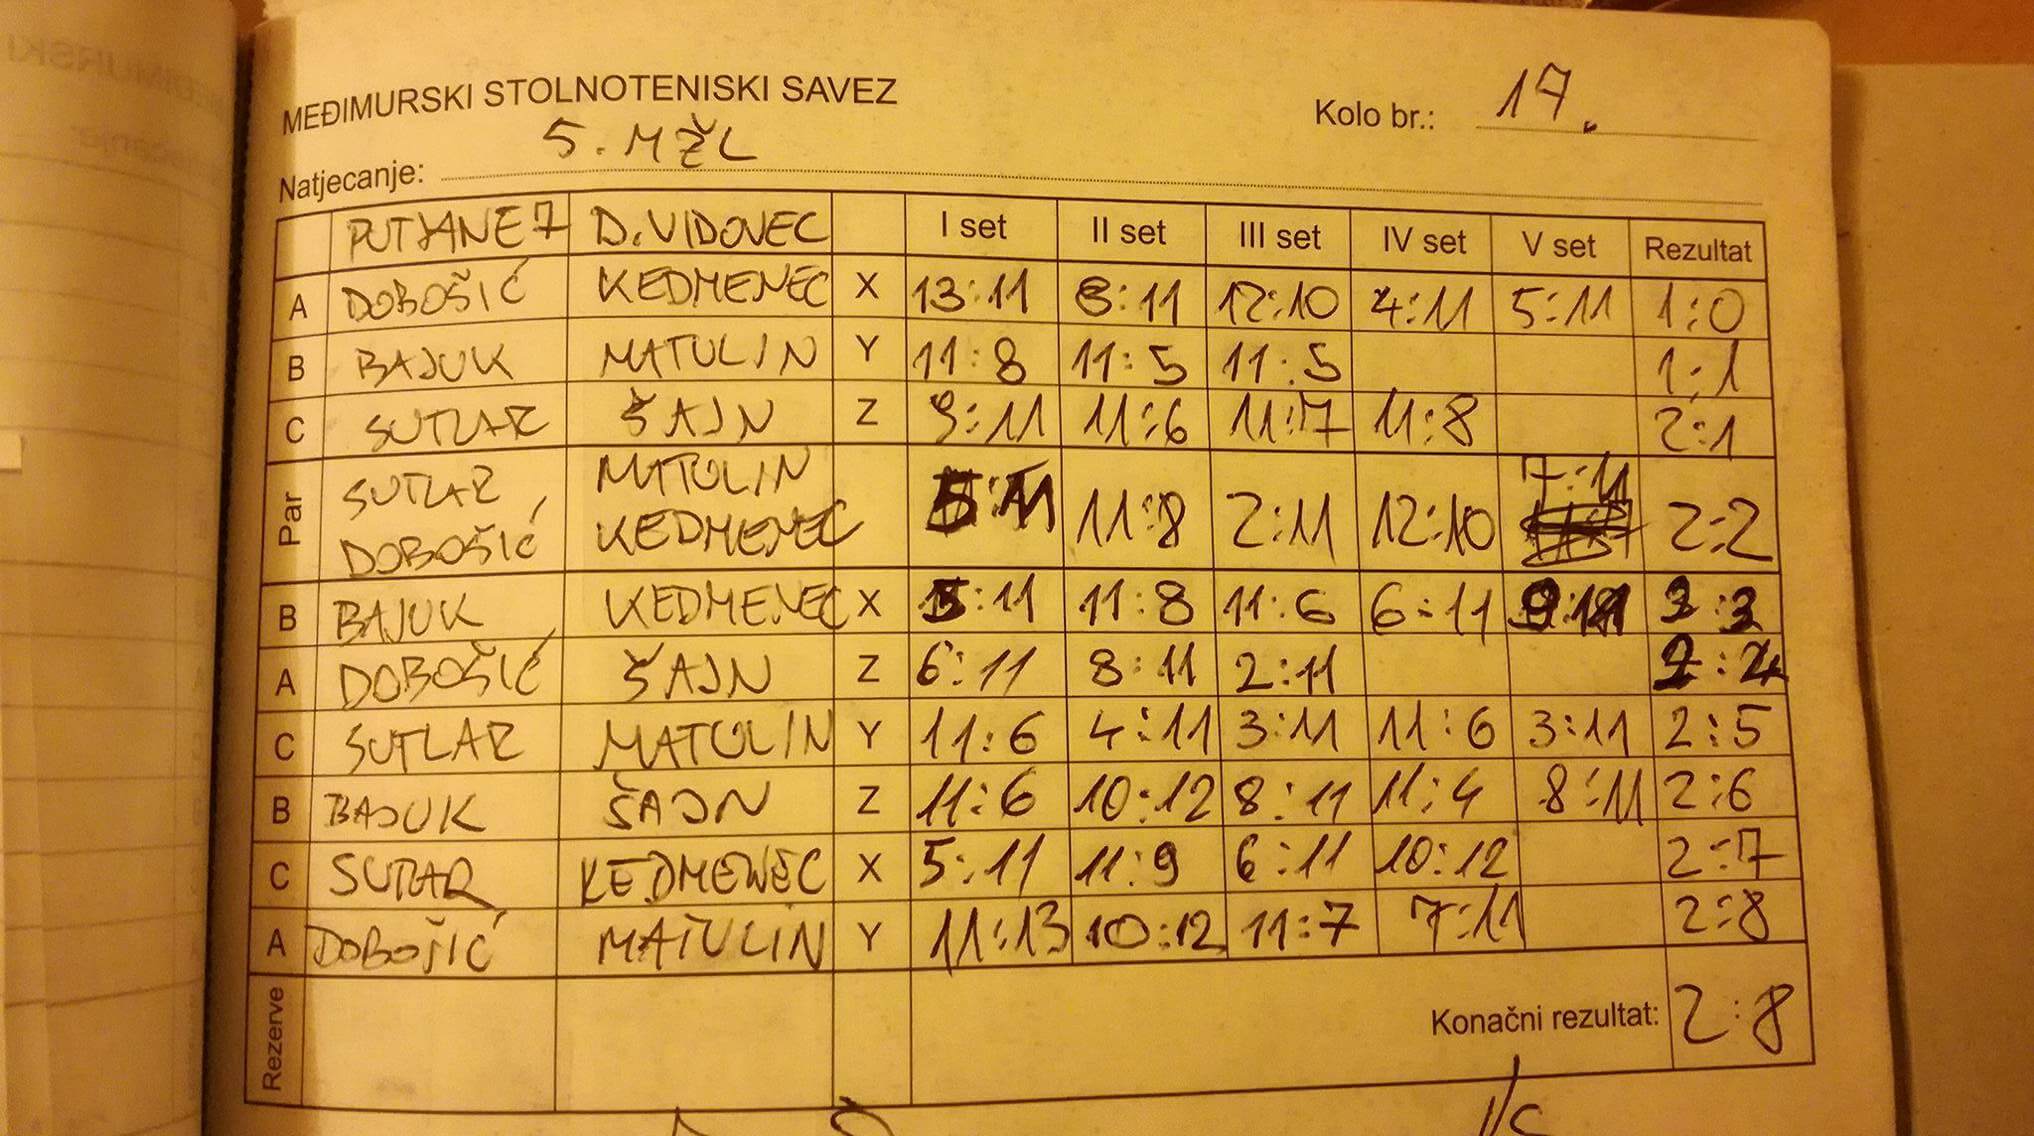 MEĐIMURSKI STOLNOTENISKI SAVEZ
Kolo br.: 17.
Natjecanje: 5. MŽL
PUTJANE 7 D. VIDOVEC I set II set III set IV set V set Rezultat
A DOBOŠIĆ KEDMENEC X 13:11 8:11 12:10 4:11 5:11 1:0
B BAJUK MATULIN Y 11:8 11:5 11:5 1:1
C SUTLAR ŠAJN Z 9:11 11:6 11:7 11:8 2:1
Par SUTLAR DOBOŠIĆ MATULIN KEDMENEC 5:11 11:8 2:11 12:10 7:11 2:2
B BAJUK KEDMENEC X 5:11 11:8 11:6 6:11 9:11 :3
A DOBOŠIĆ ŠAJN Z 6:11 8:11 2:11 2:4
C SUTLAR MATULIN Y 11:6 4:11 3:11 11:6 3:11 2:5
B BAJUK ŠAJN Z 11:6 10:12 8:11 11:4 8:11 2:6
C SUTLAR KEDMENEC X 5:11 11:9 6:11 10:12 2:7
A DOBOŠIĆ MATULIN Y 11:13 10:12 11:7 7:11 2:8
Rezerve Konačni rezultat: 2:8